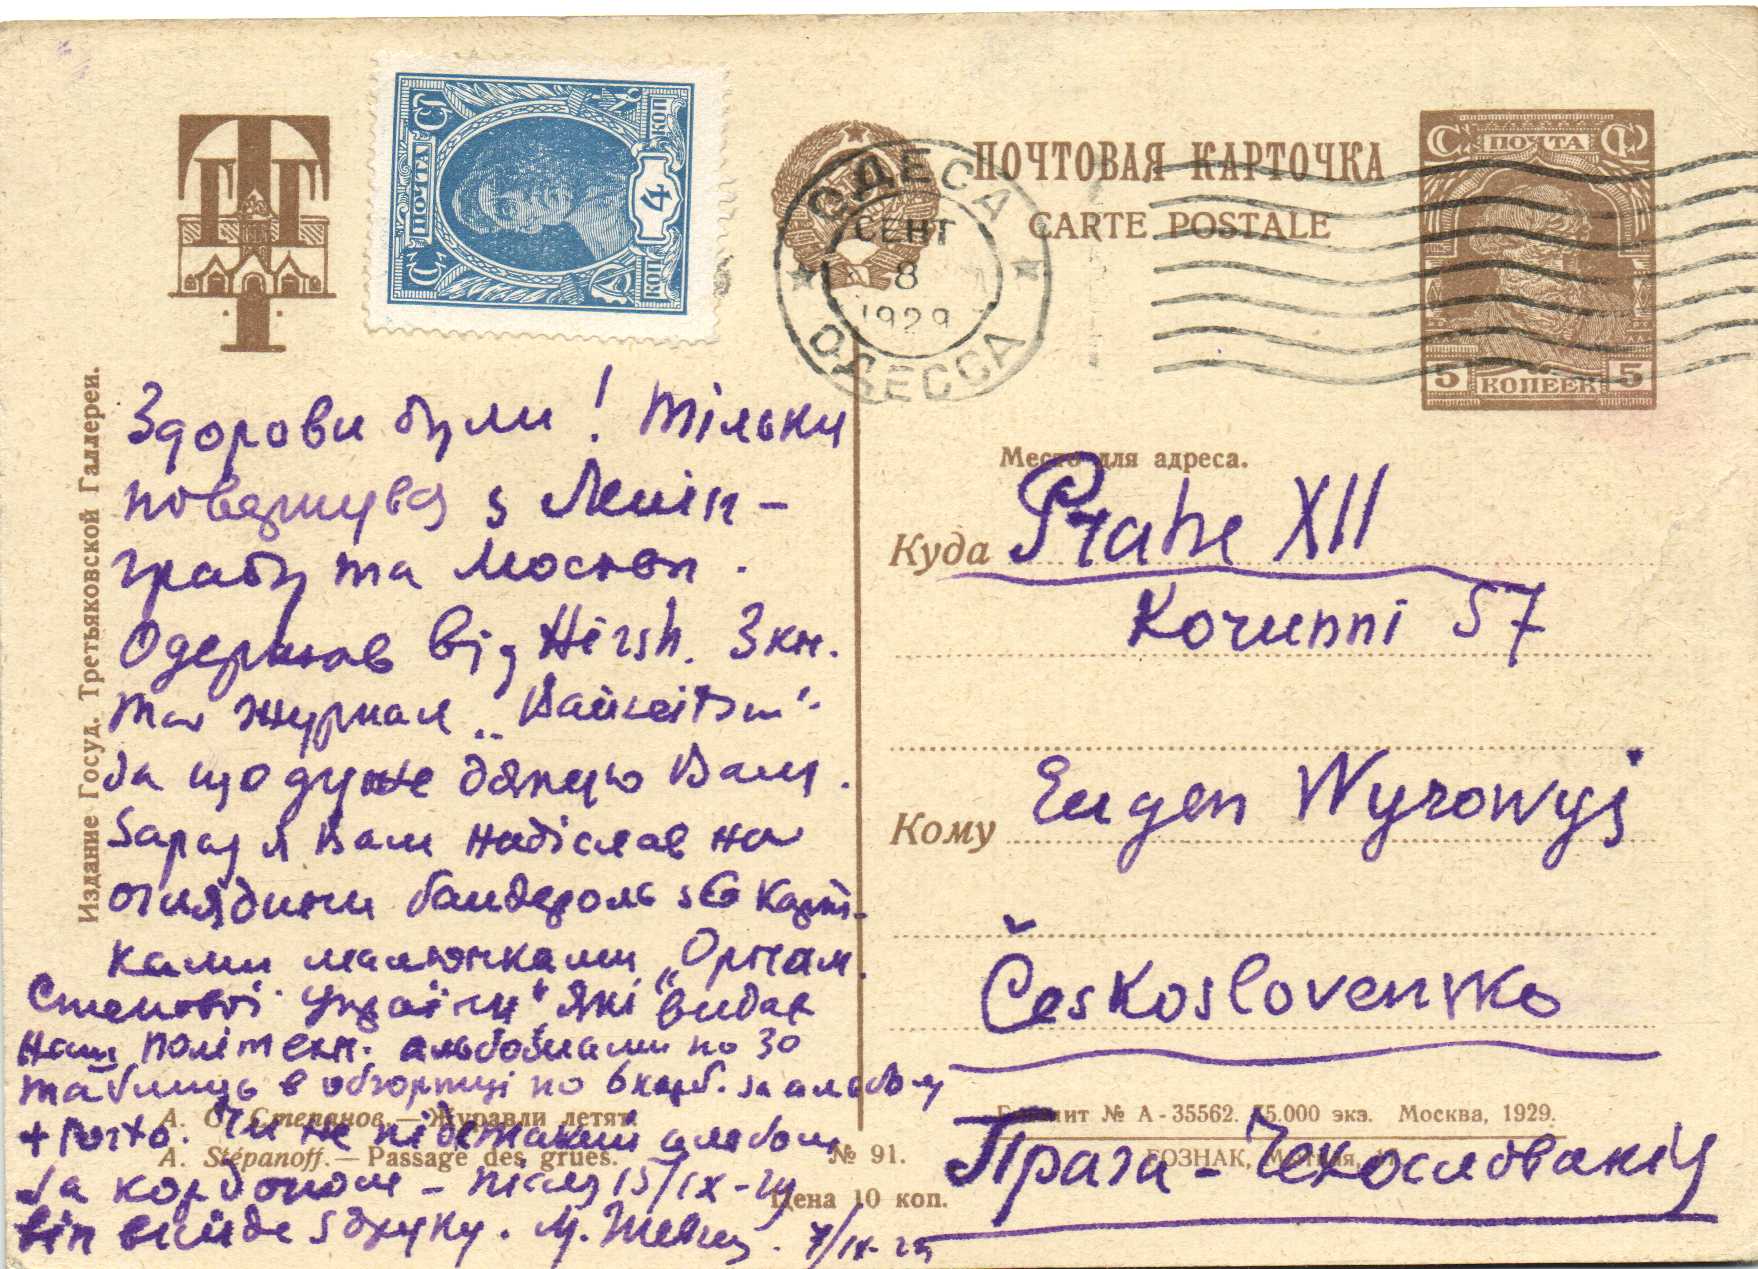 ТГ
ПОЧТА
4
КОП
КОП
ОДЕСА
СЕНТ
8
1929
ОДЕССА
ПОЧТОВАЯ КАРТОЧКА
CARTE POSTALE
ПОЧТА
5 КОПЕЕК 5
Издание Госуд. Третьяковской Галлереи.
Здорови були! Тільки
повернувсь з Ленін-
граду та Москви.
Одержав від Hirsh. 3 кн.
та журнал
за що дуже дякую Вам.
Зараз я Вам надіслав на
оглядини бандероль з 6 карт-
ками малюнками „Орнам.
Степової України" які видав
наш політехн. альбомами по 30
таблиць в обгортці по 6 карб. за альбом
+ Porto. Чи не підетакий альбом
за кордоном – після 15/IX-29
він вийде з друку. М. 7/IX-29
А. С. Степанов.—Журавли летят.
A. Stépanoff.—Passage des grues.
№ 91.
Цена 10 коп.
Место для адреса.
Куда Prahe XII
Korunni 57
Кому Eugen Wyrowyj
Československo
Главлит № А-35562. 75.000 экз. Москва, 1929.
ГОЗНАК,
Прага – Чехословакія